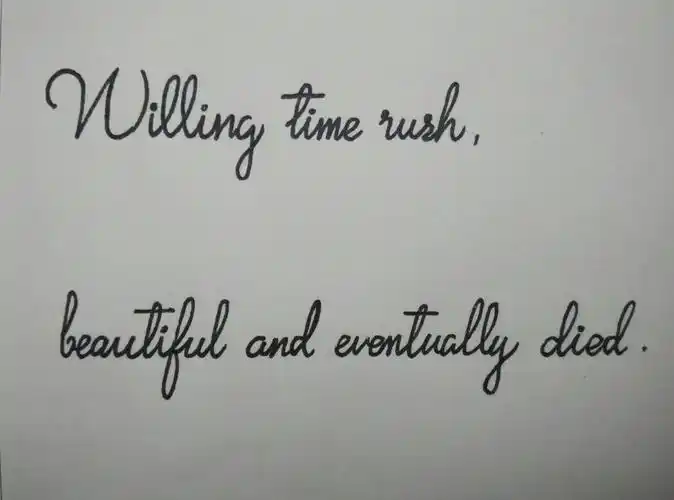 Willing time rush,
beautiful and eventually died.